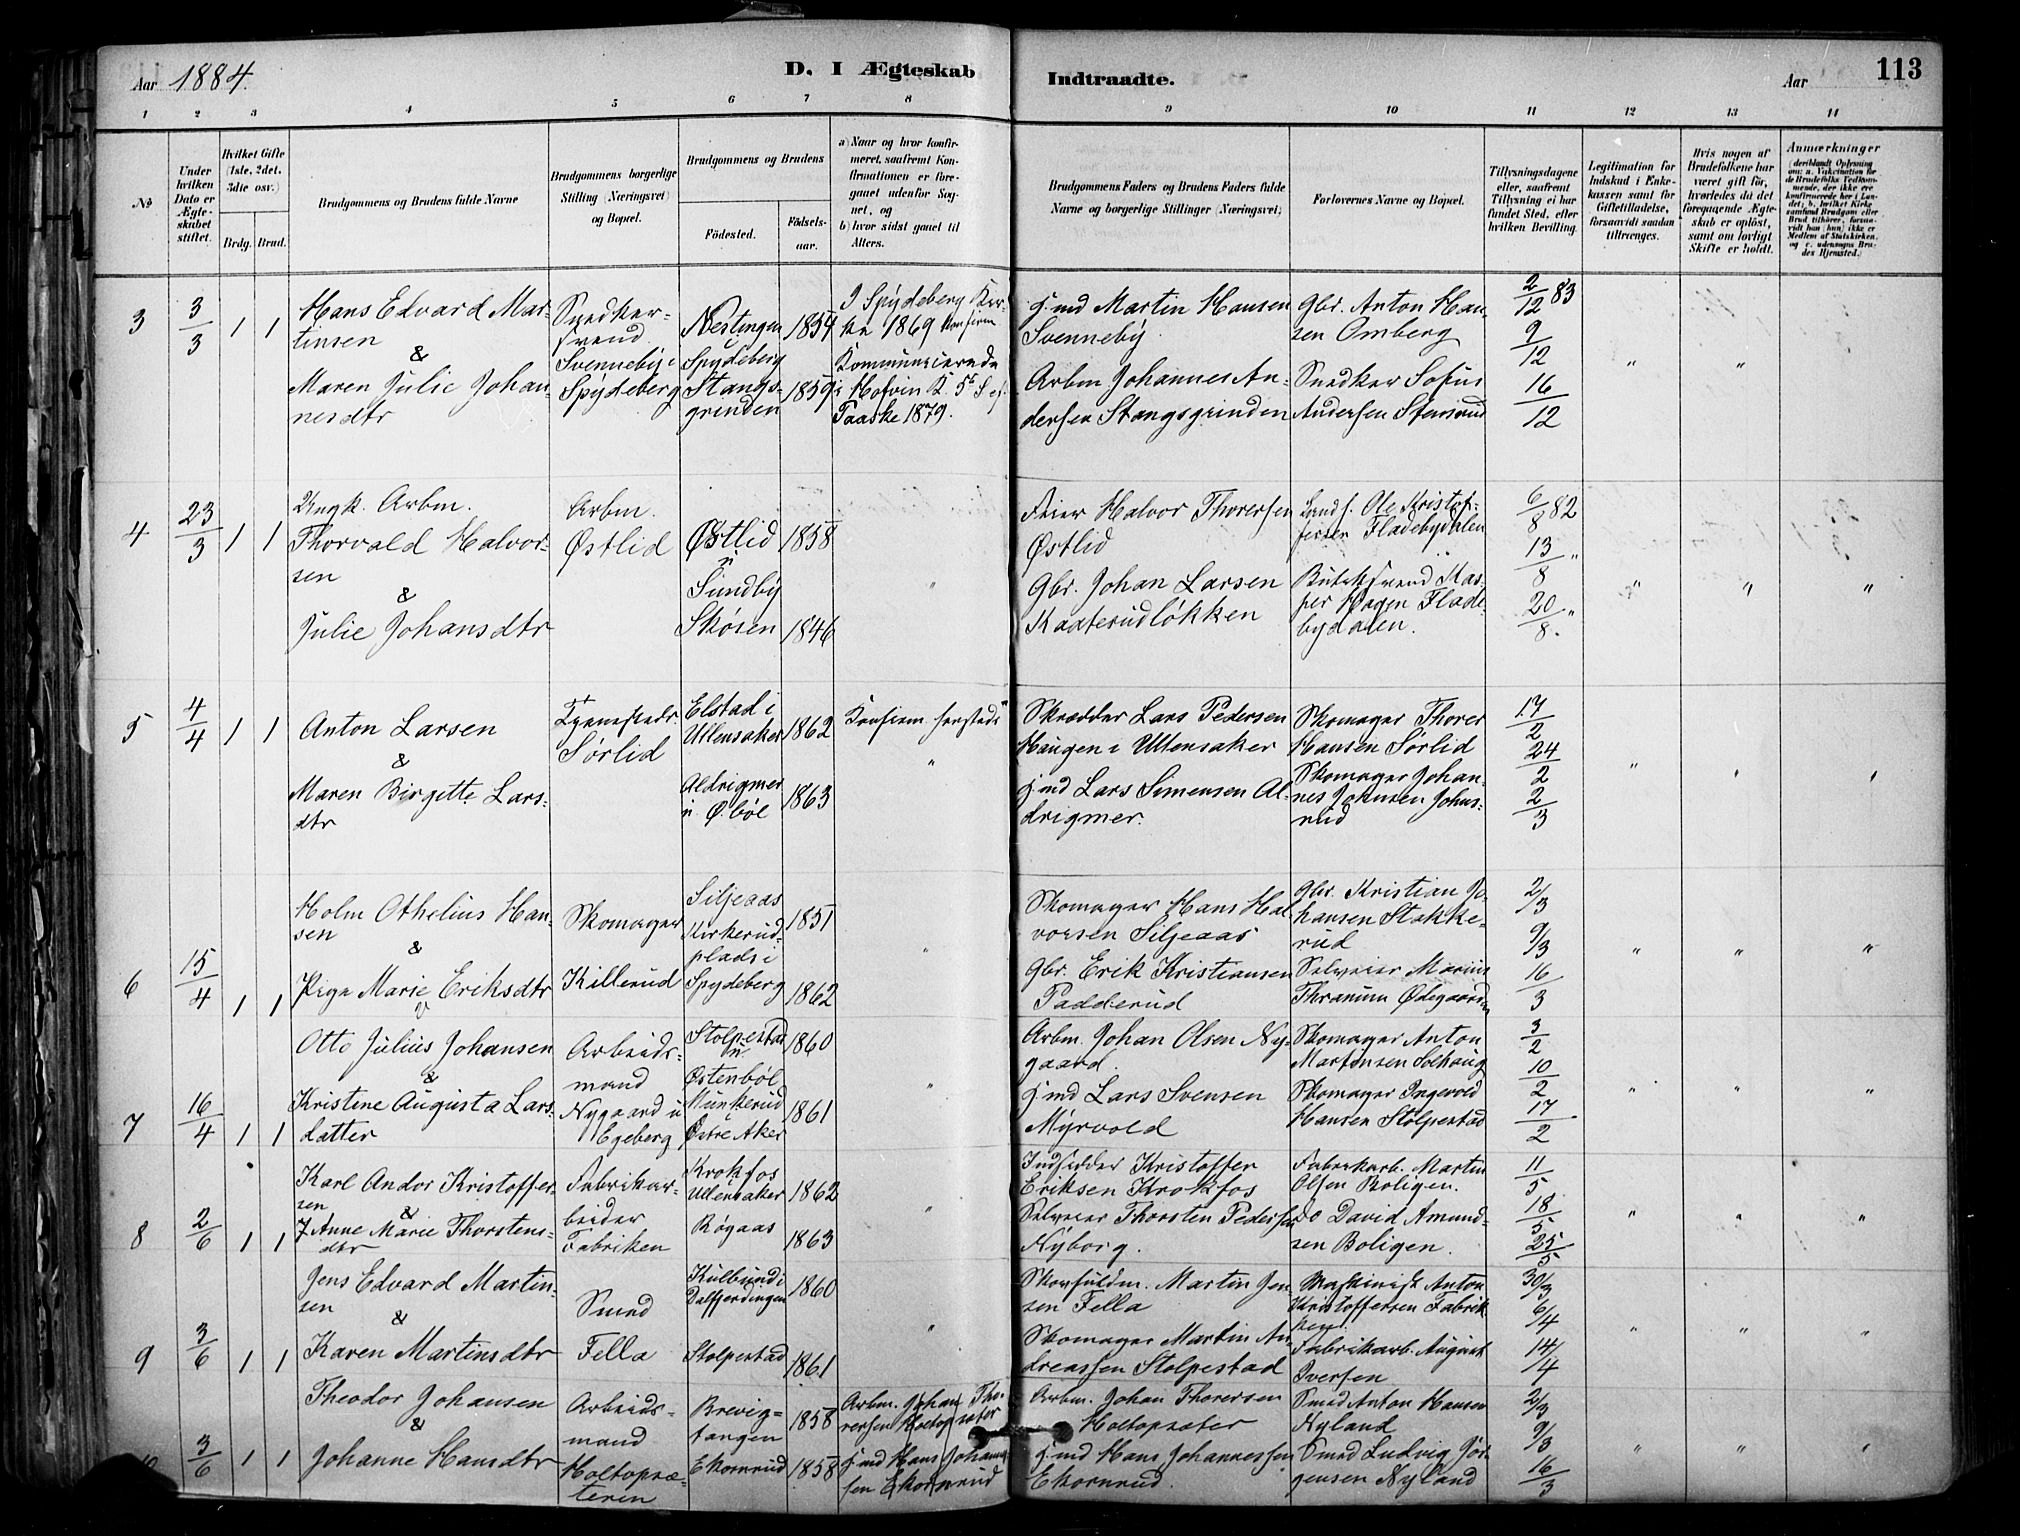 Aar 1884.
D. I Ægteskab
Indtraadte.
Aar
113
1 2 3 4 5 6 7 8 9 10 11 12 13 14
No
Under hvilken Dato er Ægteskabet stiftet.
Hvilket Gifte (1ste, 2det, 3die osv.)
Brdg. Brud.
Brudgommens og Brudens fulde Navne
Brudgommens borgerlige Stilling (Næringsvei) og Bopæl.
Brudgommens og Brudens
Fødested.
Fødselsaar.
a) Naar og hvor konfirmeret, saafremt Konfirmationen er foregaaet udenfor Sognet, og
b) hvor sidst gaaet til Alters.
Brudgommens Faders og Brudens Faders fulde Navne og borgerlige Stillinger (Næringsvei)
Forlovernes Navne og Bopæl.
Tillysningsdagene eller, saafremt Tillysning ei har fundet Sted, efter hvilken Bevilling.
Legitimation for Indskud i Enkekassen samt for Giftetilladelse, forsaavidt saadan tiltrænges.
Hvis nogen af Brudefolkene har været gift før, hvorledes da det foregaaende Ægteskab er opløst, samt om lovligt Skifte er holdt.
Anmærkninger
(deriblandt Oplysning om: a. Vakcination for de Brudefolks Vedkommende, der ikke ere konfirmerede her i Landet; b. hvilket Kirkesamfund Brudgom eller Brud tilhører, forsaavidt han (hun) ikke er Medlem af Statskirken, og c. udensogns Brudes Hjemsted.)
3
3/3
1 1
Hans Edvard Mar-
tinsen
&
Maren Julie Johan-
nesdtr
Snedker-
svend
Svenneby i
Spydeberg
Nestingen
Spydeberg
Stangs-
grinden
1854
1859
I Spydeberg Kir-
ke 1869 konfirm
Kommunicerende
i Hofvin K. 5te S ef.
Paaske 1879.
Gmd Martin Hansen
Svenneby.
Arbm. Johannes An-
dersen Stangsgrinden
Gbr. Anton Han-
sen Omberg
Snedker Sofus
Andersen Stensrud
2/12 83
9/12
16/12
" "
4
23/3
1 1
Ungk. Arbm.
Thorvald Halvor-
sen
&
Julie Johansdtr
Arbm.
Østlid
Østlid
Sundby
Skøsen
1858
1846
"
Feier Halvor Thoresen
Østlid
Gbr. Johan Larsen
Kaaterudløkken
Landh. Ole Kristof-
fersen Fladebydalen
Butiksvend Kas-
per Hagen Flade-
bydalen.
6/8 82
13/8 "
20/8 "
" " "
5
4/4
1 1
Anton Larsen
&
Maren Birgitte Lars-
dtr
Tjenestedr.
Sørlid
Elstad i
Ullensaker
Aldrigmer
u. Ø. bøl
1862
1863
Konfirm. sersteds
"
Skrædder Lars Pedersen
Haugen i Ullensaker
Gmd Lars Simensen Al-
drigmer.
Skomager Thorer
Hansen Sørlid
Skomager Johan-
nes Johnsen Johns-
rud
17/2
24/2
2/3
" " "
6
15/4
1 1
Holm Othelius Han-
sen
&
Inga Marie Eriksdtr
Skomager
Killerud
Siljeaas
Kirkerud-
plads i
Spydeberg
1851
1862
"
Skomager Hans Hal-
vorsen Siljeaas
Gbr. Erik Kristiansen
Padderud
Gbr. Kristian Jo-
hansen Stakke-
rud
Selveier Marius
Thranum Ødegaarden
2/3
9/3
16/3
" " "
7
16/4
1 1
Otto Julius Johansen
&
Kristine Augusta Lars-
datter
Arbeids-
mand
Nygaard u
Egeberg
Stolpestad
u
Østenbøl
Munkerud
Østre Aker
1860
1861
"
Arbm. Johan Olsen Ny-
gaard.
Gmd Lars Svensen
Myrvold
Skomager Anton
Martinsen Solhaug
Skomager Ingevold
Hansen Stolpestad
3/2
10/2
17/2
" " "
8
2/6
1 1
Karl Andor Kristoffer-
sen
&
Anne Marie Thorstens-
dtr
Fabrikar-
beider
Fabriken
Krokfos
Ullensaker
Røgaas
1862
1863
"
Indsidder Kristoffer
Eriksen Krokfos
Selveier Thorsten Pedersen
Nyborg.
Fabrikarb. Martin
Olsen Boligen.
Do David Amund-
sen Boligen.
11/5
18/5
25/5
" " "
9
3/6
1 1
Jens Edvard Martin-
sen
&
Karen Martinsdtr
Smed
Fella
Kulbund i
Dalfjerdingen
Stolpestad
1860
1861
"
Skovfuldm. Martin Jen-
sen Fella
Skomager Martin An-
dreassen Stolpestad
Maskinist Anton
Kristoffersen Fabrik-
ken
Fabrikarb. August
Iversen
30/3
6/4
14/4
" " "
3/6
1 1
Theodor Johansen
&
Johanne Hansdtr
Arbeids-
mand
Holtopsæ-
teren
Brevig-
tangen
Ekornrud
1858
1858
Arbm. Johan Tho-
rersen Holtopsæter
Gmd Hans Johannes-
sen Ekornrud
Arbm. Johan Thorersen
Holtopsæter
Gmd Hans Johannessen
Ekornrud.
Smed Anton Hansen
Nyland
Smed Ludvig Jør-
gensen Nyland
2/3
9/3
16/3
" " "